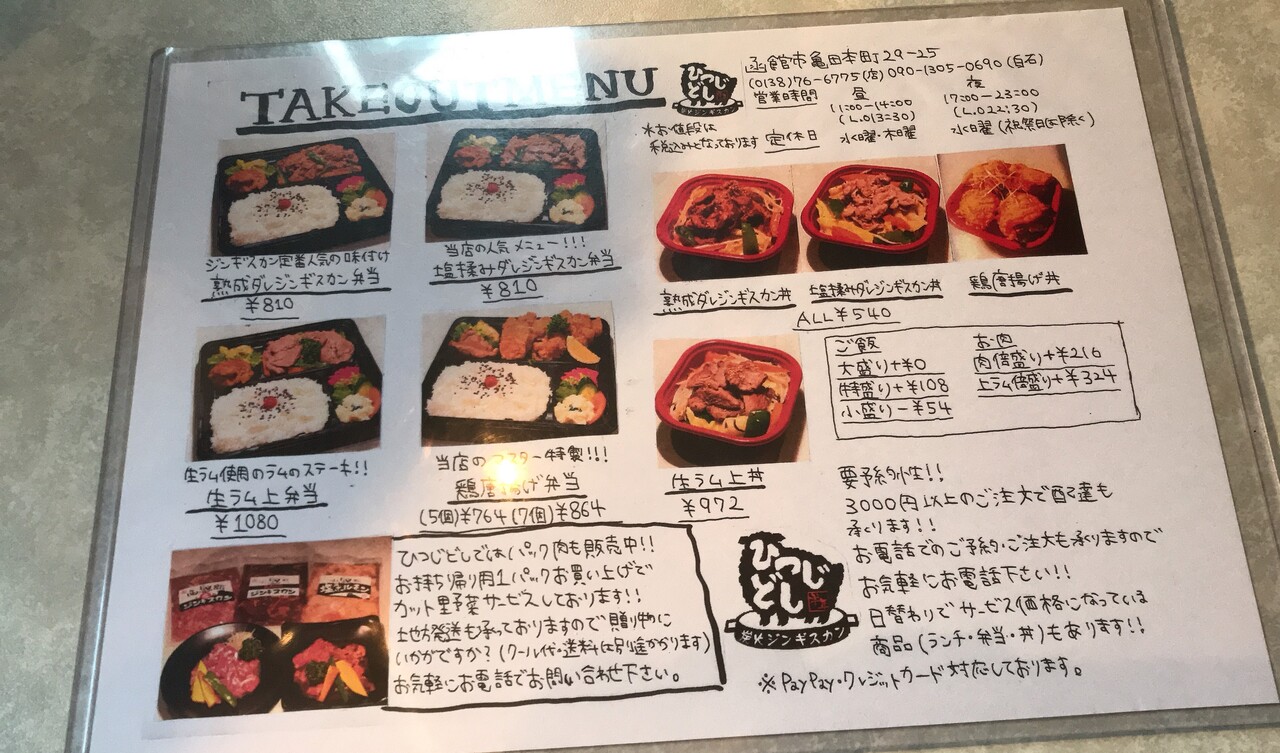 TAKEOUT MENU
ひつじどし
炭火ジンギスカン
函館市亀田本町29-25
(0138)76-6775(店) 090-1305-0690(白石)
営業時間
昼
11:00-14:00
(L.O13:30)
夜
17:00-23:00
(L.O22:30)
定休日
水曜・木曜
水曜(祝祭日は除く)
※お値段は
税込みとなっております
ジンギスカン定番人気の味付け
熟成ダレジンギスカン弁当
¥810
当店の人気メニュー!!!
塩揉みダレジンギスカン弁当
¥810
熟成ダレジンギスカン丼
塩揉みダレジンギスカン丼
鶏唐揚げ丼
ALL¥540
ご飯
大盛り+¥0
特盛り+¥108
小盛り-¥54
お肉
肉倍盛り+¥216
上ラム倍盛り+¥324
生ラム使用のラムのステーキ!!
生ラム上弁当
¥1080
当店のマスター特製!!!
鶏唐揚げ弁当
(5個)¥764 (7個)¥864
生ラム上丼
¥972
要予約制!!
3000円以上のご注文で配達も
承ります!!
お電話でのご予約・ご注文も承りますので
お気軽にお電話下さい!!
日替わりでサービス価格になっている
商品(ランチ・弁当・丼)もあります!!
※PayPay・クレジットカード対応しております。
ひつじどしではパック肉も販売中!!
お持ち帰り用1パックお買い上げで
カット野菜サービスしております!!
地方発送も承っておりますので贈り物に
いかがですか?(クール代・送料は別途かかります)
お気軽にお電話でお問い合わせ下さい。
ひつじどし
炭火ジンギスカン
ジンギスカン
ジンギスカン